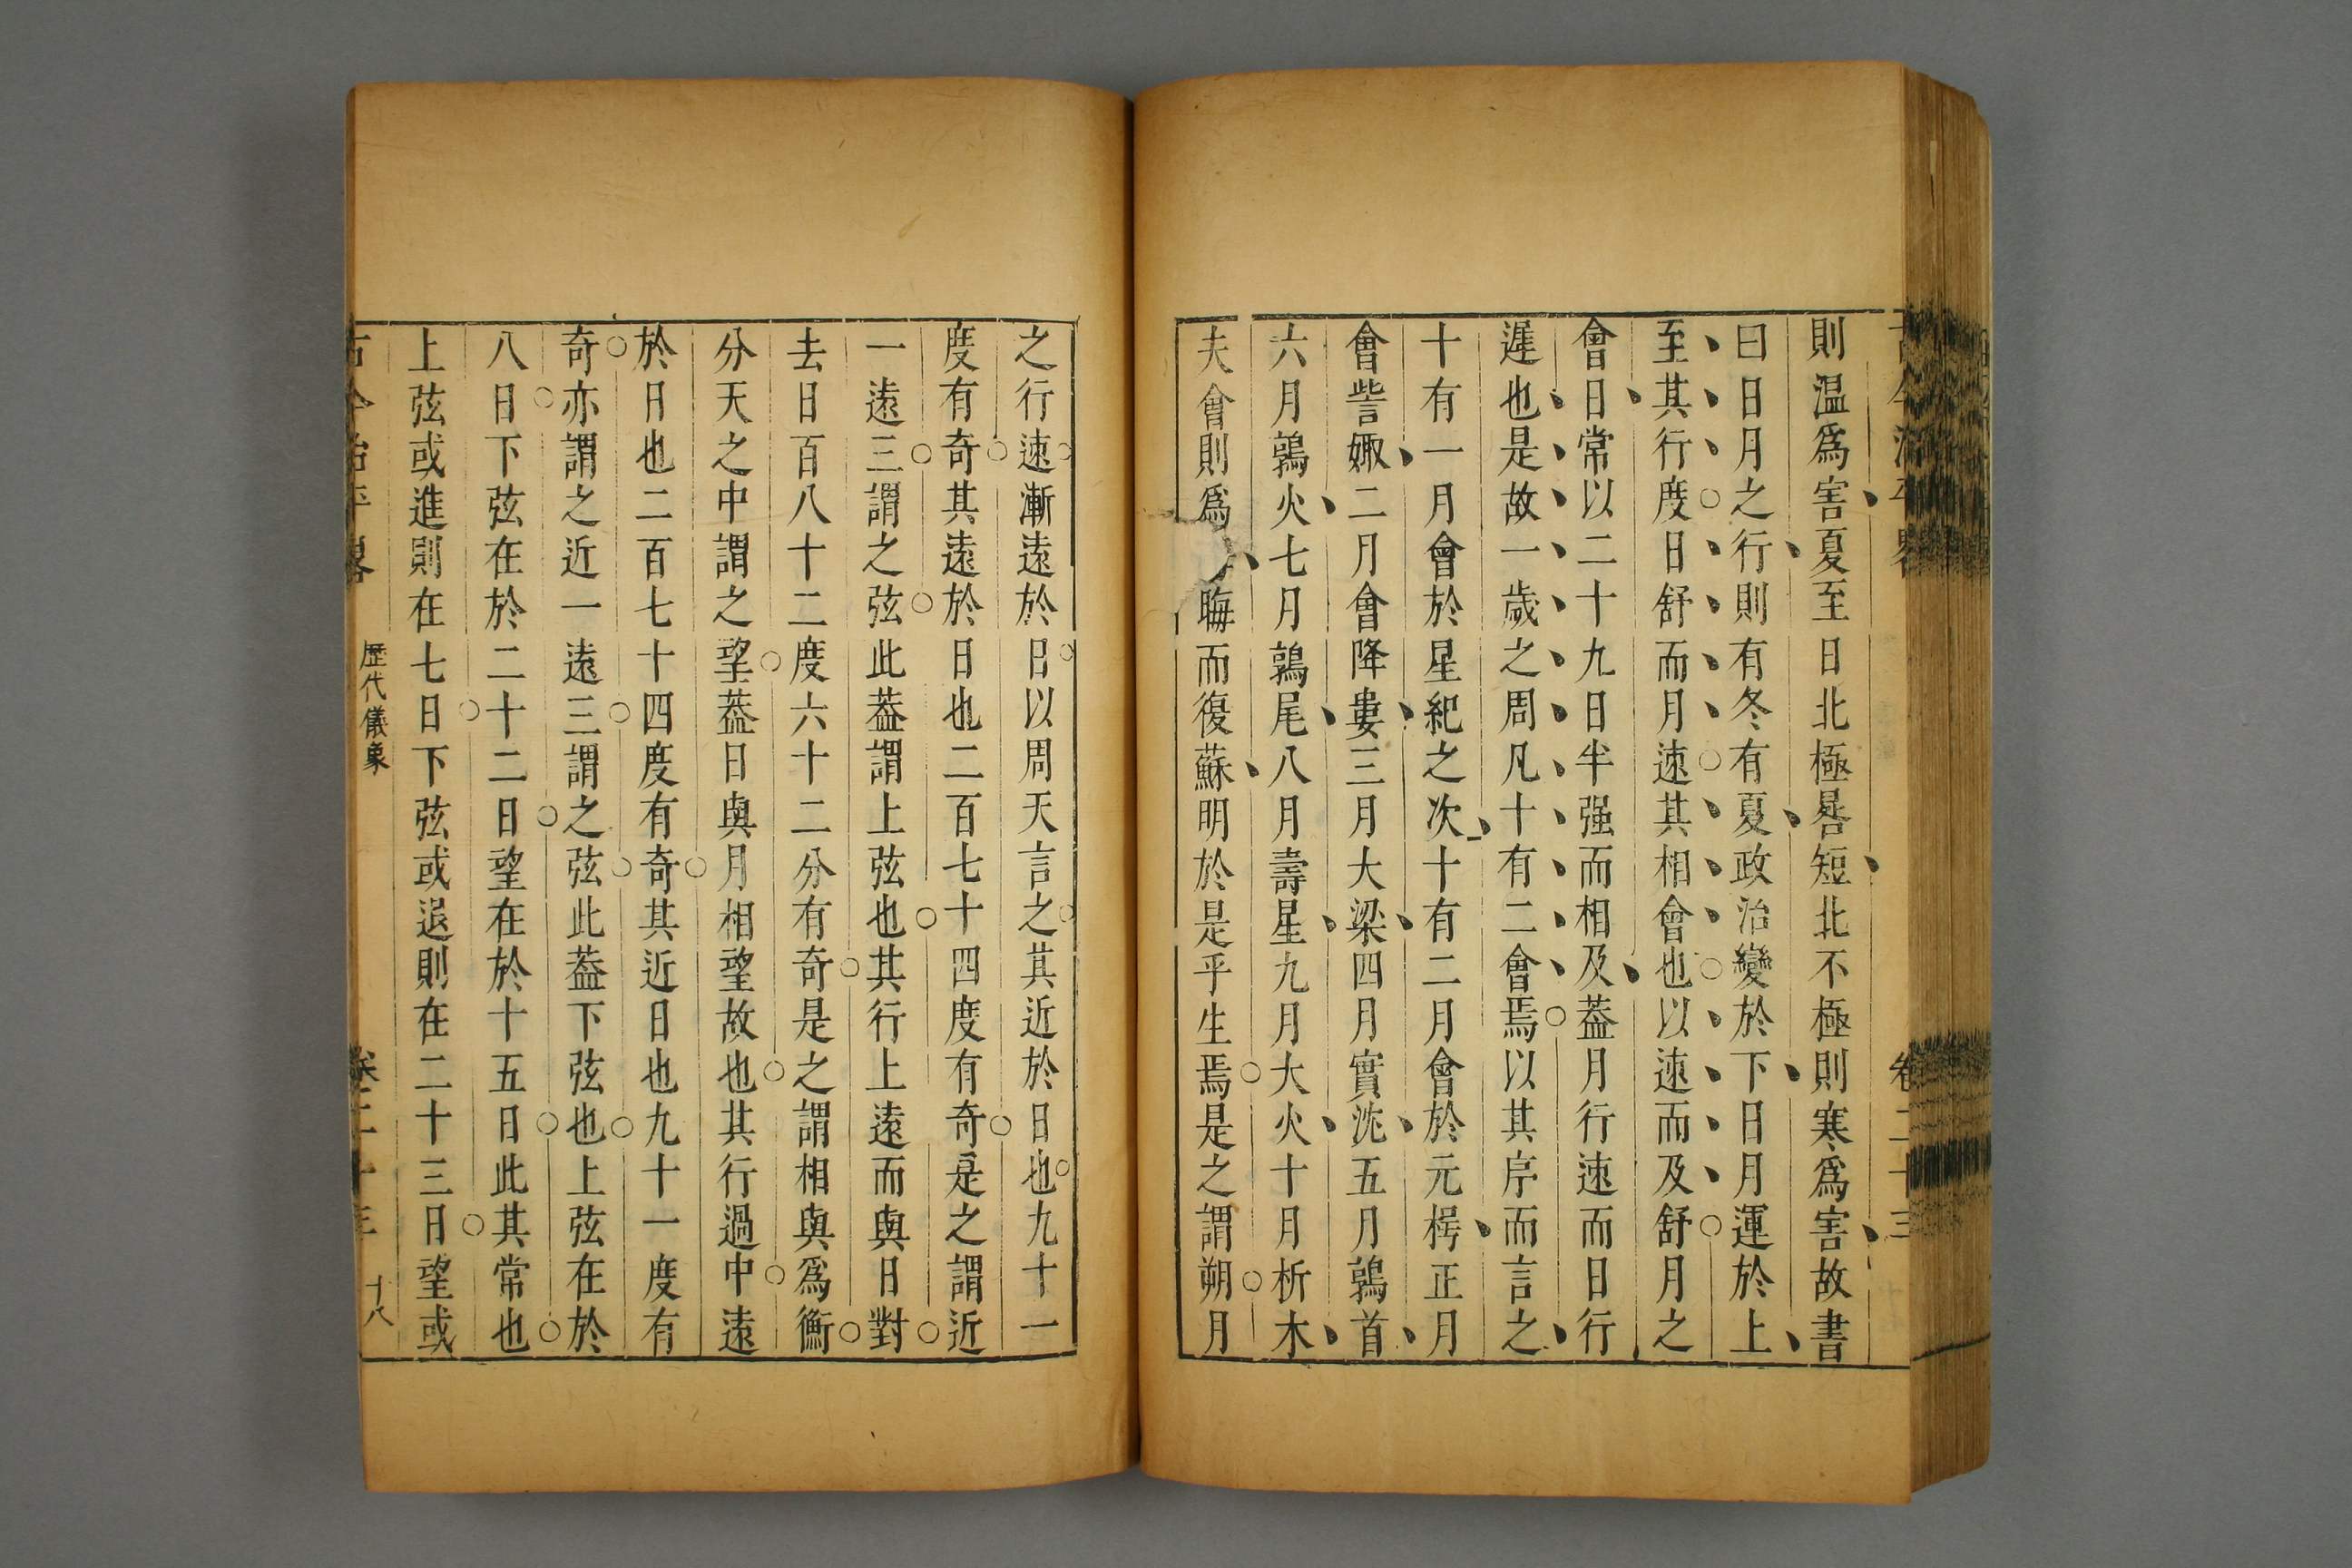 則温爲害夏至日北極晷短北不極則寒爲害故書
曰日月之行則有冬有夏政治變於下日月運於上
至其行度日舒而月速其相會也以速而及舒月之
會日常以二十九日半强而相及葢月行速而日行
遲也是故一歲之周凡十有二會焉以其序而言之
十有一月會於星紀之次十有二月會於元枵正月
會訾娵二月會降婁三月大梁四月實沈五月鶉首
六月鶉火七月鶉尾八月壽星九月大火十月析木
夫會則爲晦而復蘇明於是乎生焉是之謂朔月
之行速漸遠於日以周天言之其近於日也九十一
度有奇其遠於日也二百七十四度有奇是之謂近
一遠三謂之弦此葢謂上弦也其行上遠而與日對
去日百八十二度六十二分有奇是之謂相與爲衡
分天之中謂之望葢日與月相望故也其行過中遠
於日也二百七十四度有奇其近日也九十一度有
奇亦謂之近一遠三謂之弦此葢下弦也上弦在於
八日下弦在於二十二日望在於十五日此其常也
上弦或進則在七日下弦或退則在二十三日望或
古今治平畧 歷代儀象 卷二十三 十八